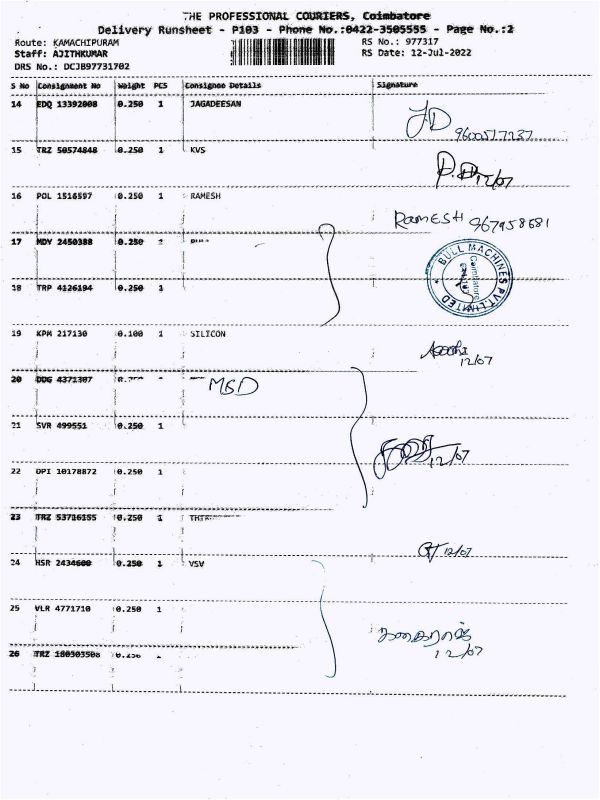 THE PROFESSIONAL COURIERS, Coimbatore
Delivery Runsheet - P103 - Phone No.:0422-3505555 - Page No.:2
Route: KAMACHIPURAM RS No.: 977317
Staff: AJITHKUMAR RS Date: 12-Jul-2022
DRS No.: DCJB97731702
S No Consignment No Weight PCS Consignee Details Signature
14 EDQ 13392008 0.250 1 JAGADEESAN
J.D 9600517237
15 TRZ 50574848 0.250 1 KVS
12/07
16 POL 1516597 0.250 1 RAMESH
RAMESH 967958681
17 MDY 2450388 0.250
BULL MACHINES PVT. LIMITED
Coimbatore
18 TRP 4126194 0.250 1
19 KPM 217130 0.100 1 SILICON
12/07
20 DDG 4371307
MGD
21 SVR 499551 0.250 1
12/07
22 DPI 10178872 0.250 1
23 TRZ 53716155 0.250 1
12/07
24 HSR 2434600 0.250 1 VSV
25 VLR 4771710 0.250 1
12/07
26 TRZ 180303508 0.250